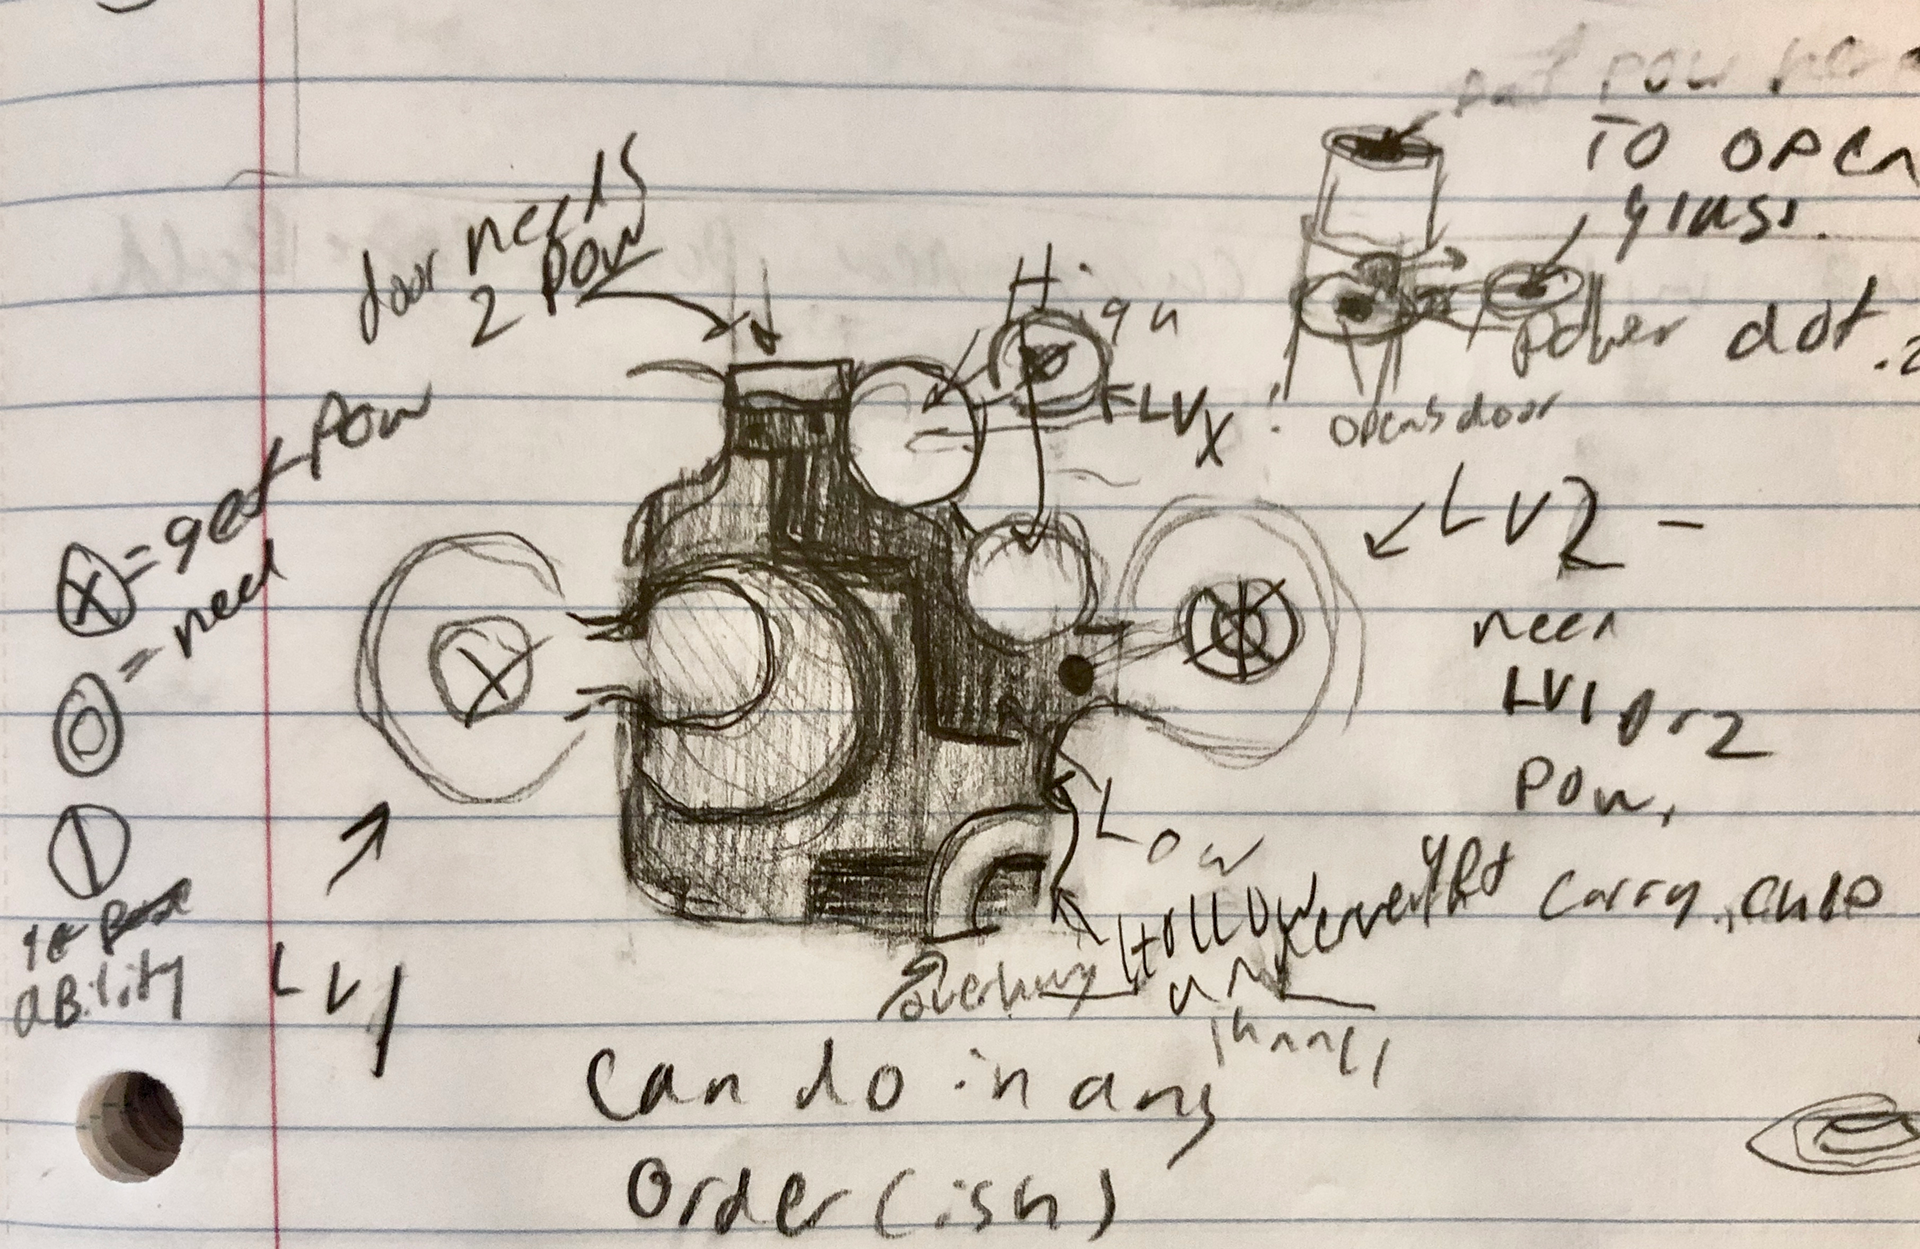 Put Pow here
TO OPEN
glass.
Power dot.
opens door
door needs
2 Pow
High
LVX
X = get Pow
= need
ability
LV1
LV2 -
need
LV1 or 2
Pow,
Low
Hollow
overhang
Carry, cube
Can do in any
Order (ish)